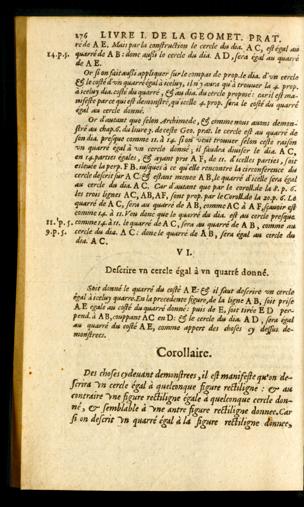 176 LIVRE I. DE LA GEOMET. PRAT.
re de AE. Mais par la construction le cercle du dia. AC, est égal au
14.p.5. quarré de AB: donc aussi le cercle du dia. AD, sera égal au quarré
de AE.
Or si on fait aussi appliquer sur le compas de prop. le dia. d'vn cercle
& le costé d'vn quarré égal à iceluy, il n'y aura qu'à trouuer la 4. prop.
à iceluy dia. costé du quarré, & au dia. du cercle proposé: car il est ma-
nifeste par ce qui est demonstré, qu'icelle 4. prop. sera le costé du quarré
égal au cercle donné.
Or d'autant que selon Archimede, & comme nous auons demons-
tré au chap. 6. du liure 7. de ceste Geo. prat. le cercle est au quarré de
son dia. presque comme 11. à 14. si on veut trouuer selon ceste raison
vn quarré égal à vn cercle donné; il faudra diuiser le dia. AC,
en 14. parties égales, & ayant pris AF, de 11. d'icelles parties, soit
esleuée la perp. FB, iusques à ce qu'elle rencontre la circonference du
cercle descrit sur AC & estant menée AB, le quarré d'icelle sera égal
au cercle du dia. AC. Car d'autant que par le coroll. de la 8. p. 6.
les trois lignes AC, AB, AF, sont prop. par le Coroll. de la 20. p. 6. Le
quarré de AC, sera au quarré de AB, comme AC à AF, sçauoir est
comme 14. à 11. Veu donc que le quarré du dia. est au cercle presque
11.p.5. comme 14. à 11. le quarré de AC, sera au quarré de AB, comme au
9.p.5. cercle du dia. AC: donc le quarré de AB, sera égal au cercle du
dia. AC.
VI.
Descrire vn cercle égal à vn quarré donné.
Soit donné le quarré du costé AE: & il faut descrire vn cercle
égal à iceluy quarré. En la precedente figure, de la ligne AB, soit prise
AE égale au costé du quarré donné: puis de E, soit tirée ED per-
pend. à AB, couppant AC en D: & le cercle du dia. AD, sera égal
au quarré du costé AE, comme appert des choses cy dessus de-
monstrees.
Corollaire.
Des choses cy deuant demonstrees, il est manifeste qu'on de-
scrira vn cercle égal à quelconque figure rectiligne: & au
contraire vne figure rectiligne égale à quelconque cercle don-
né, & semblable à vne autre figure rectiligne donnee. Car
si on descrit vn quarré égal à la figure rectiligne donnee,